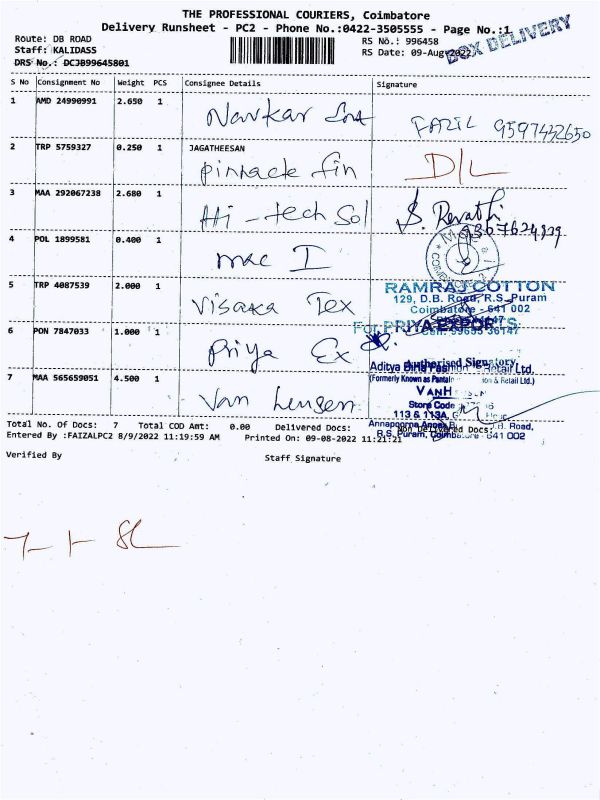 THE PROFESSIONAL COURIERS, Coimbatore
Delivery Runsheet - PC2 - Phone No.:0422-3505555 - Page No.:1
BOX DELIVERY
Route: DB ROAD
RS No.: 996458
Staff: KALIDASS
RS Date: 09-Aug-2022
DRS No.: DCJB99645801
S No Consignment No Weight PCS Consignee Details Signature
1 AMD 24990991 2.650 1 Navkar Int FAZIL 9597452650
2 TRP 5759327 0.250 1 JAGATHEESAN
pinnacle fin D/L
3 MAA 292067238 2.680 1 Hi-tech Sol S. Revathi
4 POL 1899581 0.400 1 mac I
5 TRP 4087539 2.000 1 Visaka Tex
RAMRAJ COTTON
129, D.B. Road, R.S. Puram
Coimbatore - 641 002
Cell: 99655 36147
6 PON 7847033 1.000 1 Priya Ex
For PRIYA EXPORTS
Authorised Signatory
7 MAA 565659051 4.500 1 Van heusen
Aditya Birla Fashion Retail Ltd.
(Formerly Known as Pantaloon & Retail Ltd.)
VANH
Store Code
113 & 113A,
Annapoorna D.B. Road,
R.S. Puram, Coimbatore - 641 002
Total No. Of Docs: 7 Total COD Amt: 0.00 Delivered Docs: Non Delivered Docs:
Entered By :FAIZALPC2 8/9/2022 11:19:59 AM Printed On: 09-08-2022 11:21:21
Verified By Staff Signature